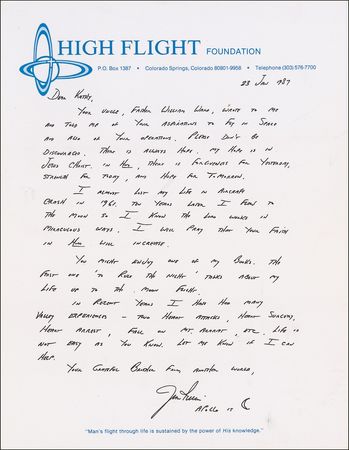 HIGH FLIGHT FOUNDATION
P.O. Box 1387 • Colorado Springs, Colorado 80901-9958 • Telephone (303) 576-7700
23 Jan 1987
Dear Kathy,
Your uncle, Father William Ward, wrote to me
and told me of your aspirations to fly in space
and also of your operations. Please don't be
discouraged. There is always hope. My hope is in
Jesus Christ. In Him, there is forgiveness for yesterday,
strength for today, and hope for tomorrow.
I almost lost my life in aircraft
crash in 1961. Ten years later I flew to
the moon so I know the Lord works in
miraculous ways. I will pray that your faith
in Him will increase.
You might enjoy one of my books. The
first one "To Rule the Night" talks about my
life up to the moon flight.
In recent years I have had many
valley experiences - two heart attacks, heart surgery,
heart arrest, fall on Mt. Ararat, etc. Life is
not easy as you know. Let me know if I can
help.
Your grateful brother from another world,
Jim Irwin
Apollo 15
"Man's flight through life is sustained by the power of His knowledge."